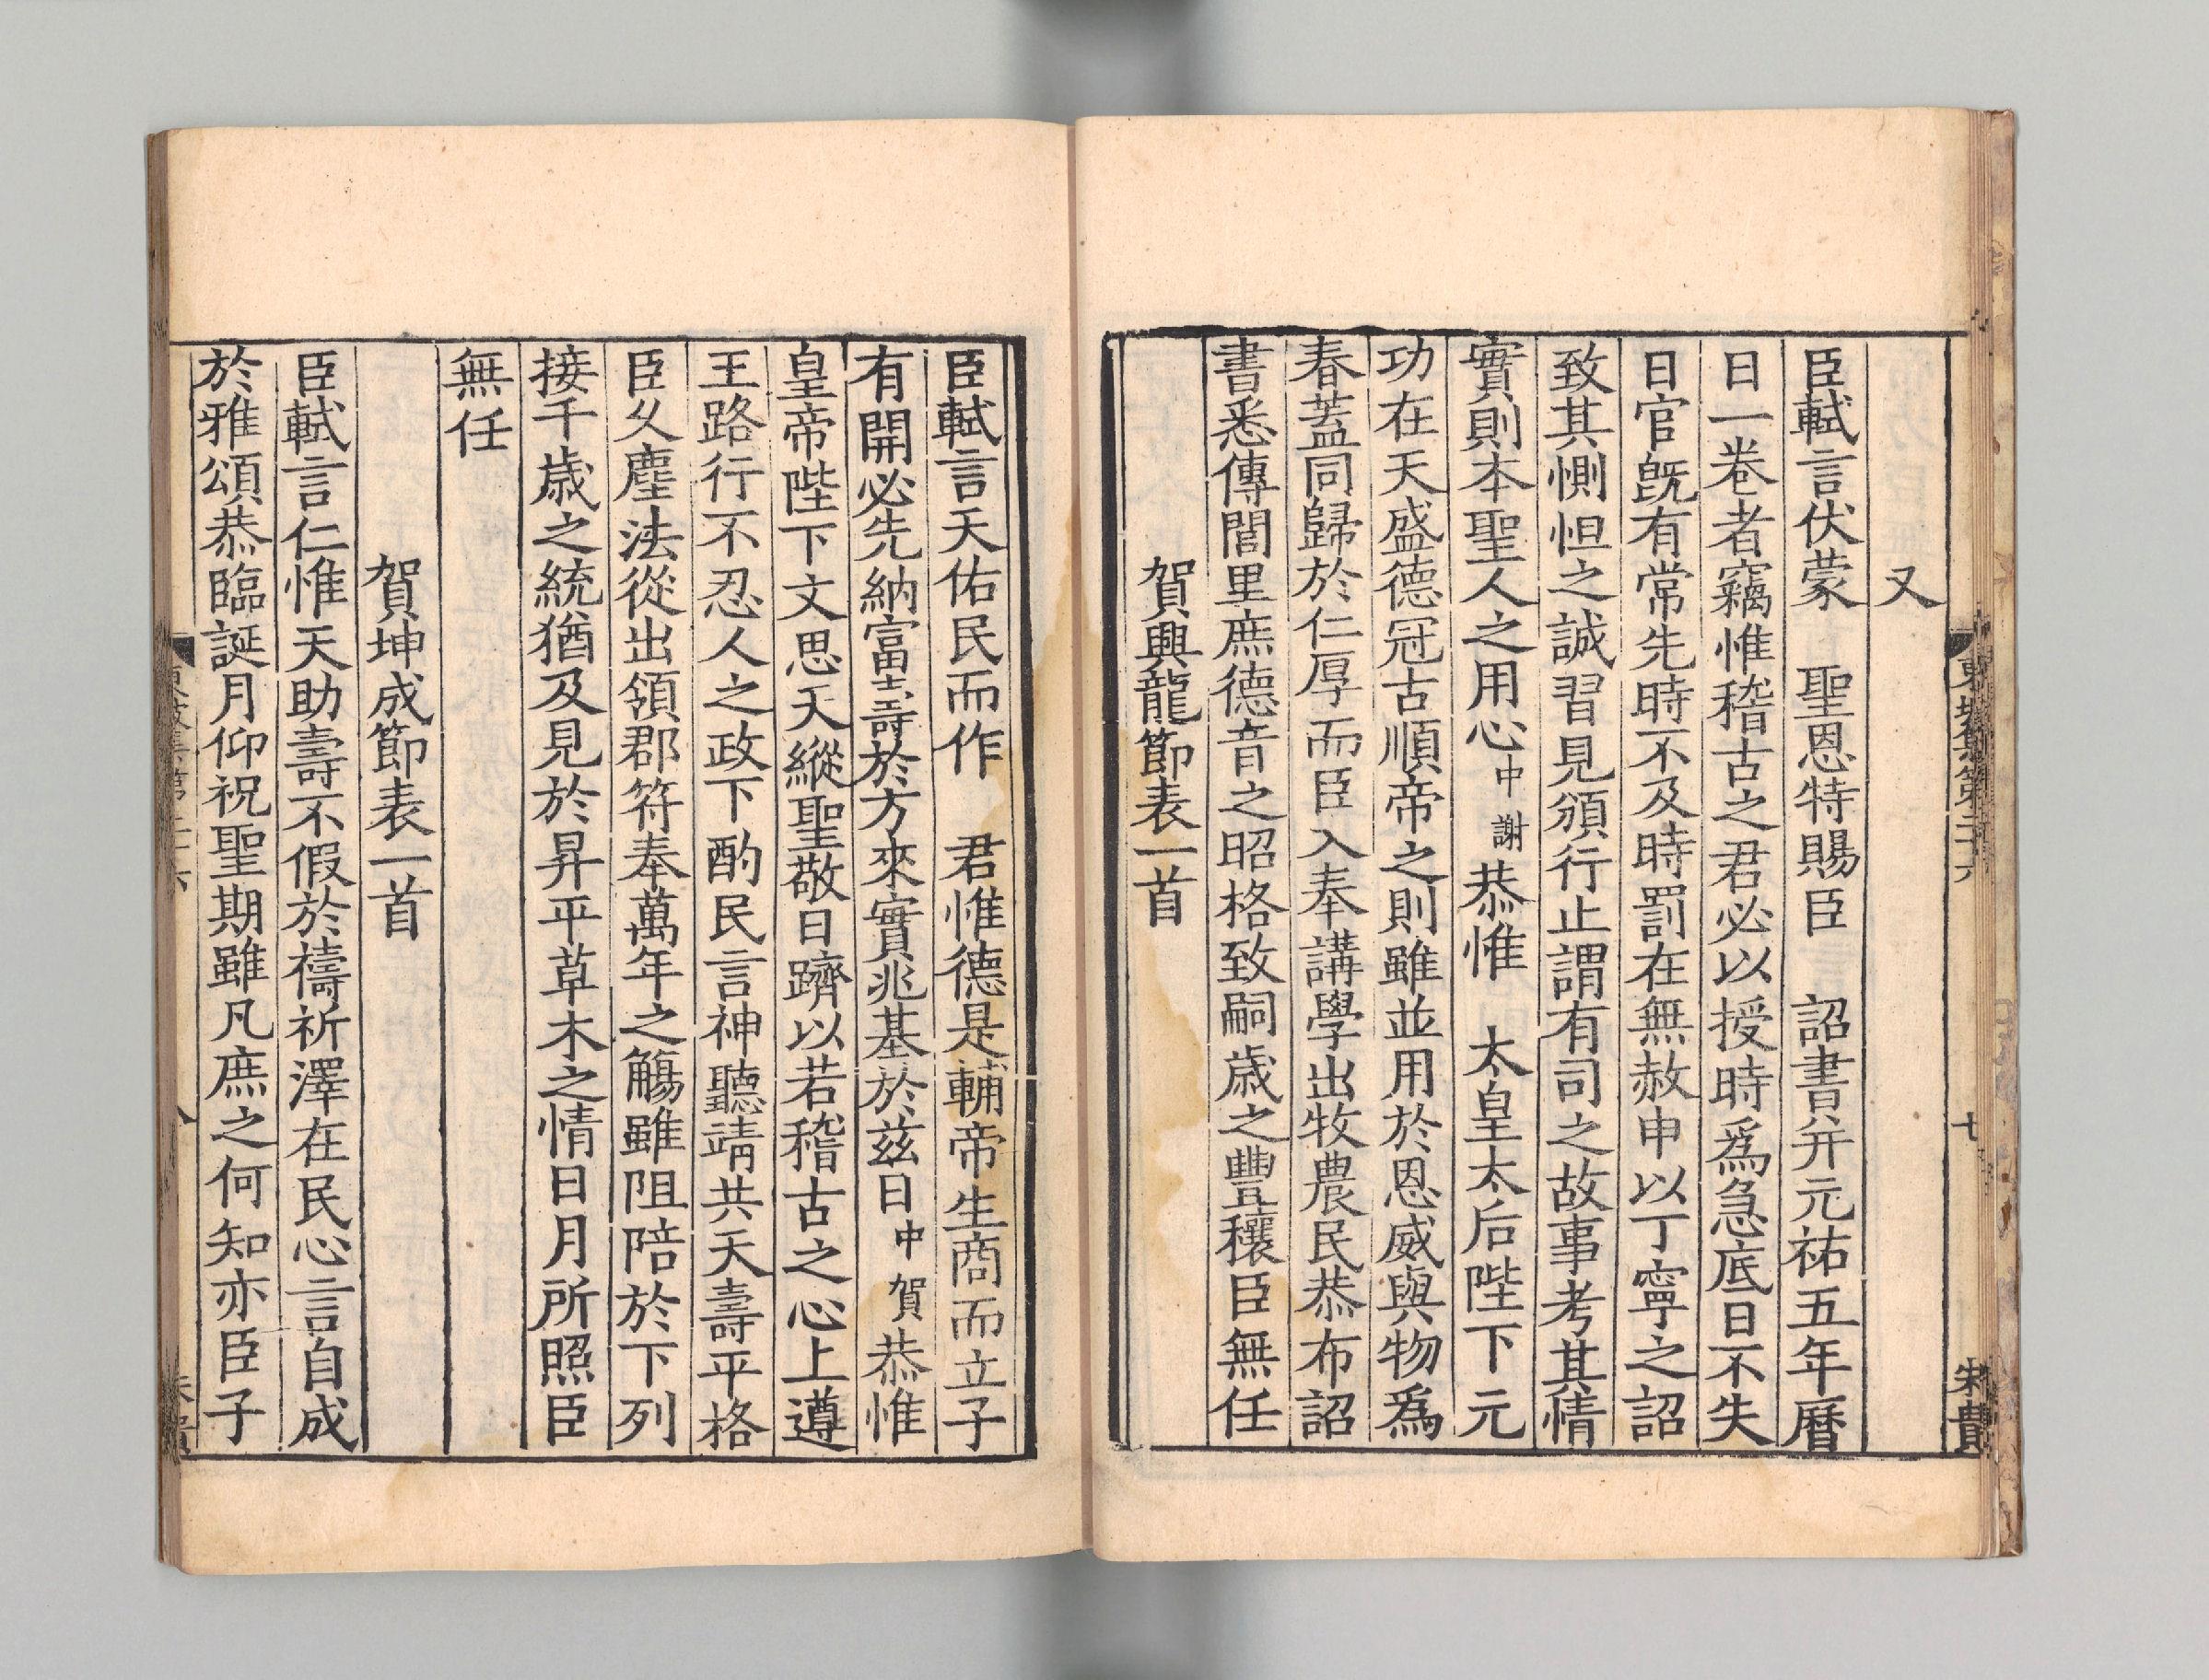 又
臣軾言伏蒙　聖恩特賜臣　詔書并元祐五年曆
日一卷者竊惟稽古之君必以授時爲急底日不失
日官旣有常先時不及時罰在無赦申以丁寧之詔
致其惻怛之誠習見頒行止謂有司之故事考其情
實則本聖人之用心中謝恭惟　太皇太后陛下元
功在天盛德冠古順帝之則雖並用於恩威與物爲
春蓋同歸於仁厚而臣入奉講學出牧農民恭布詔
書悉傳閭里庶德音之昭格致嗣歲之豐穰臣無任
賀興龍節表一首
臣軾言天佑民而作　君惟德是輔帝生商而立子
有開必先納富壽於方來實兆基於茲日中賀恭惟
皇帝陛下文思天縱聖敬日躋以若稽古之心上遵
王路行不忍人之政下酌民言神聽靖共天壽平格
臣久塵法從出領郡符奉萬年之觴雖阻陪於下列
接千歲之統猶及見於昇平草木之情日月所照臣
無任
賀坤成節表一首
臣軾言仁惟天助壽不假於禱祈澤在民心言自成
於雅頌恭臨誕月仰祝聖期雖凡庶之何知亦臣子